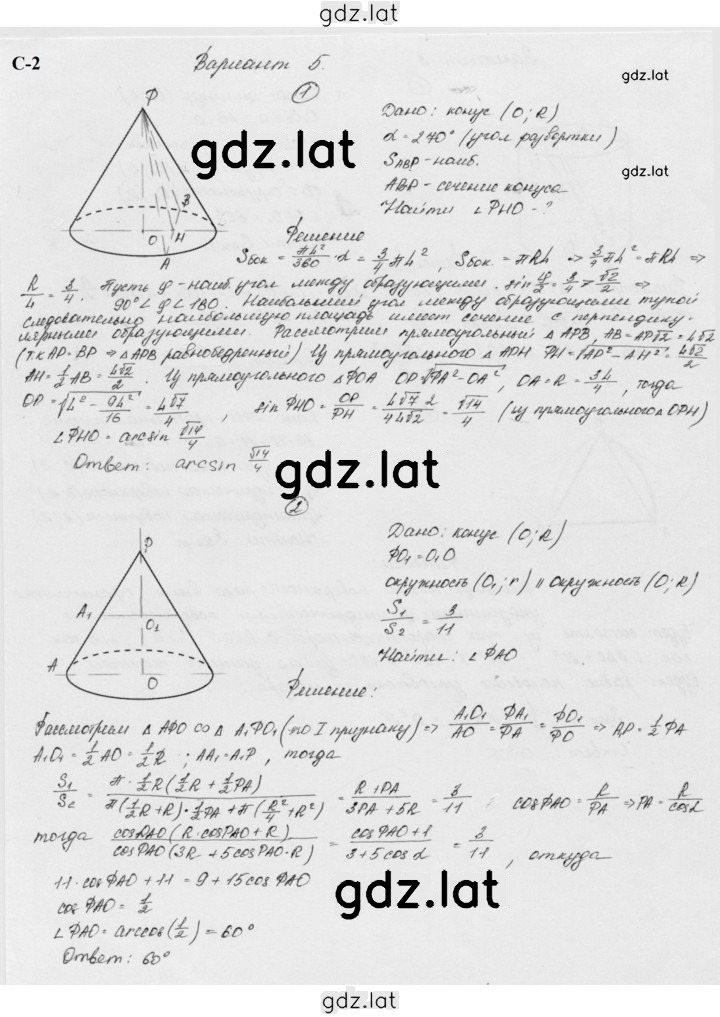 gdz.lat
С-2
Вариант 5.
gdz.lat
1
Р
В
О
Н
А
Дано: конус (О; R)
α = 270° (угол развортки)
S_ABP - наиб.
АВР - сечение конуса
Найти ∠PHO - ?
gdz.lat
gdz.lat
Решение
Sбок = πL²/360 · α = 3/4 πL², Sбок. = πRL ⇒ 3/4 πL² = πRL ⇒
R/L = 3/4. Пусть φ - наиб. угол между образующими. sin φ/2 = 3/4 > √2/2 ⇒
90° < φ < 180. Наибольший угол между образующими тупой
следовательно наибольшую площадь имеет сечение с перпендику-
лярными образующими. Рассмотрим прямоугольный Δ APB, AB = AP√2 = L√2
(т.к AP = BP ⇒ Δ APB равнобедренный) Из прямоугольного Δ APH PH = √AP² - AH² = L√2/2
AH = 1/2 AB = L√2/2. Из прямоугольного Δ POA OP = √PA² - OA², OA = R = 3L/4, тогда
OP = √L² - 9L²/16 = L√7/4, sin PHO = OP/PH = L√7 2/4L√2 = √14/4 (из прямоугольного Δ OPH)
∠PHO = arcsin √14/4
Ответ: arcsin √14/4
gdz.lat
2
Р
A₁
O₁
A
O
Дано: конус (О; R)
PO₁ = O₁O
окружность (O₁; r) || окружность (O; R)
S₁/S₂ = 3/11
Найти: ∠PAO
Решение:
Рассмотрим Δ APO со Δ A₁PO₁ (по I признаку) ⇒ A₁O₁/AO = PA₁/PA = PO₁/PO ⇒ AP = 1/2 PA
A₁O₁ = 1/2 AO = 1/2 R ; AA₁ = A₁P, тогда
S₁/S₂ = π · 1/2 R (1/2 R + 1/2 PA)/π(1/2 R + R) · 1/2 PA + π(R²/4 + R²) = R + PA/3PA + 5R = 3/11 cos PAO = R/PA ⇒ PA = R/cos α
тогда cos PAO (R · cos PAO + R)/cos PAO (3R + 5 cos PAO · R) = cos PAO + 1/3 + 5 cos α = 3/11, откуда
11 · cos PAO + 11 = 9 + 15 cos PAO
cos PAO = 1/2
∠PAO = arccos (1/2) = 60°
Ответ: 60°
gdz.lat
gdz.lat